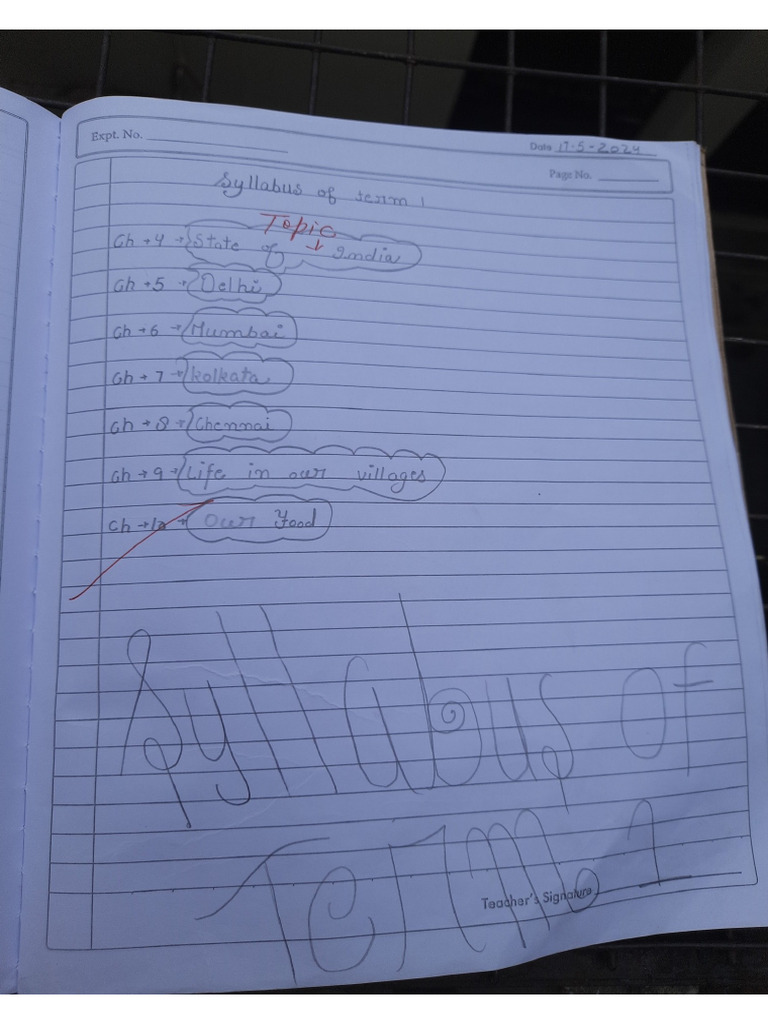 Expt. No.
Date 17-5-2024
Page No.
Syllabus of term 1
Topic
↓
Ch → 4 → State of India
Ch → 5 → Delhi
Ch → 6 → Mumbai
Ch → 7 → Kolkata
Ch → 8 → Chennai
Ch → 9 → Life in our villages
Ch → 10 → Our Food
Syllabus of
Term. 1
Teacher's Signature